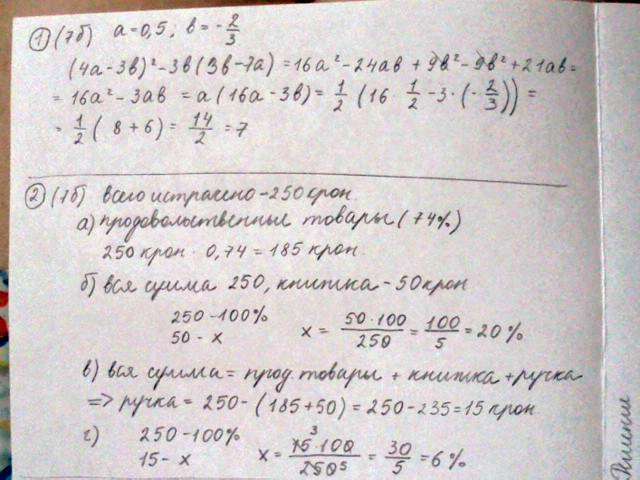 ① (7б) a=0,5, в=-2/3
(4a-3в)²-3в(3в-7a)=16a²-24aв+9в²-9в²+21aв=
=16a²-3aв=a(16a-3в)=1/2(16·1/2-3·(-2/3))=
=1/2(8+6)=14/2=7
② (7б) всего истрачено-250 крон.
а) продовольственные товары (74%)
250 крон·0,74=185 крон.
б) вся сумма 250, книжка-50 крон
250-100%
50-x x=50·100/250=100/5=20%
в) вся сумма=прод. товары+книжка+ручка
=> ручка=250-(185+50)=250-235=15 крон
г) 250-100%
15-x x=15·100/250=30/5=6%
3
5
Решение